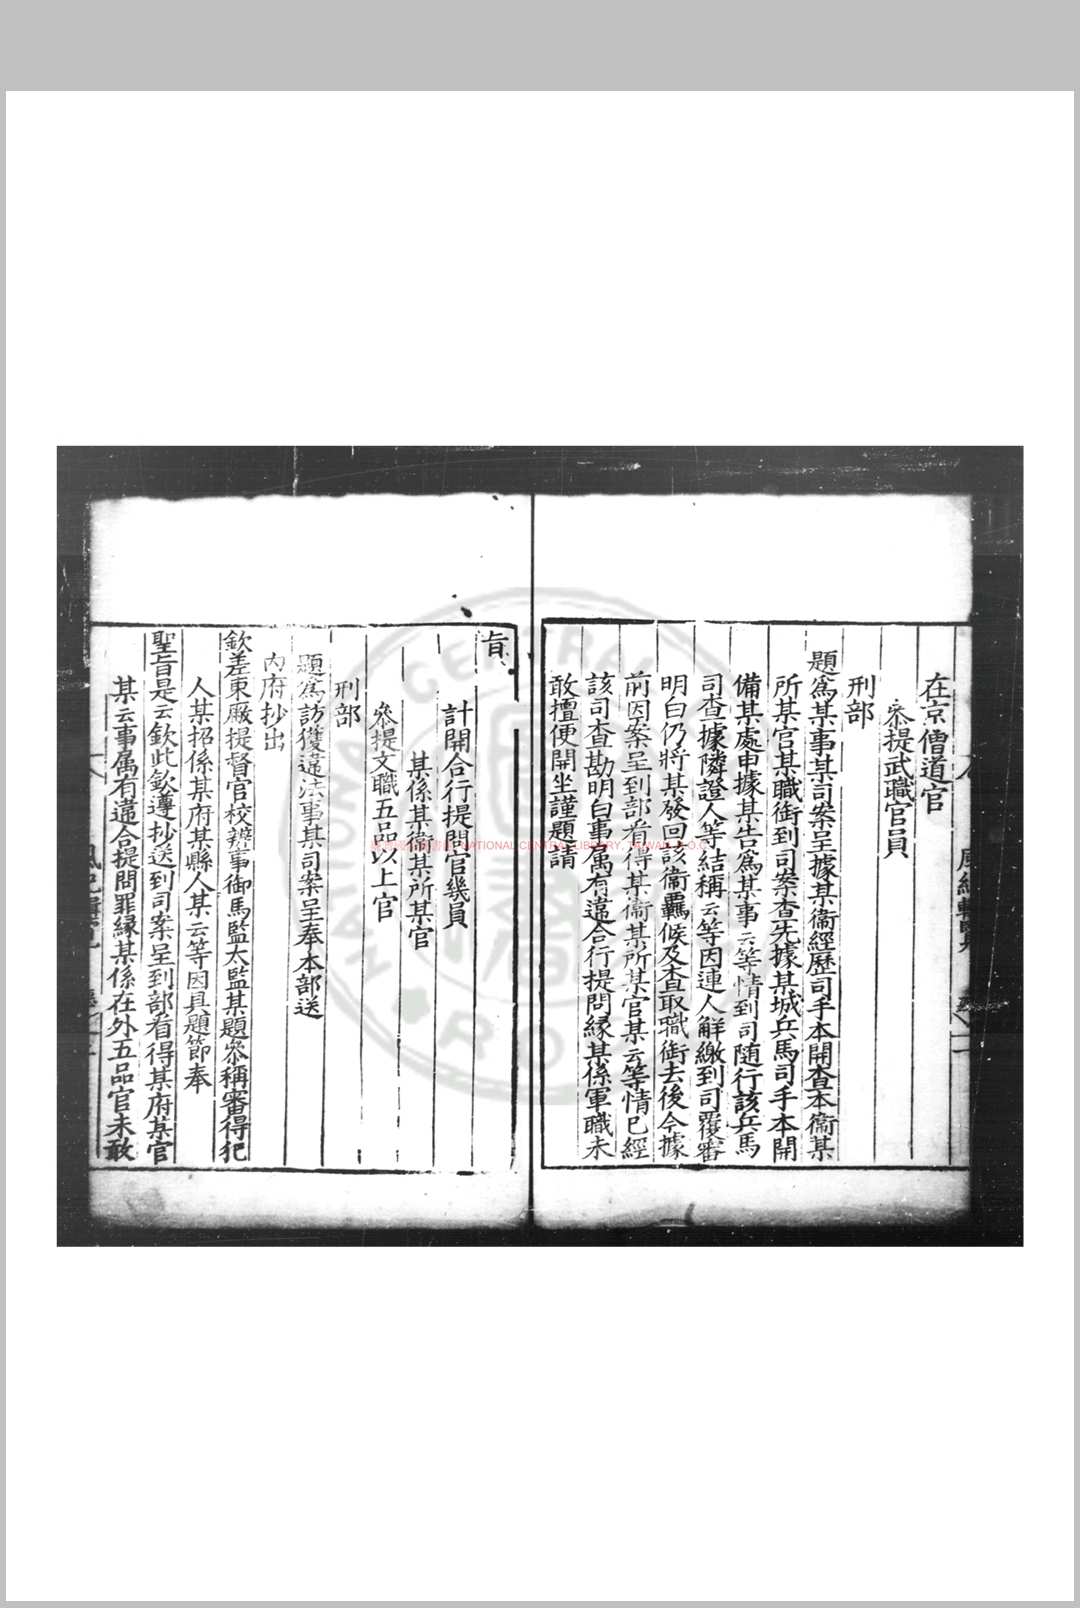 在京僧道官
叅提武職官員
刑部
題為某事某司案呈據某衞經歷司手本開查本衞某
所某官某職銜到司案查先據某城兵馬司手本開
備某處申據某告為某事云等情到司随行該兵馬
司查據隣證人等結稱云等因連人觧繳到司覆審
明白仍將某發回該衞羈候及查取職銜去後今據
前因案呈到部看得某衞某所某官某云等情已經
該司查勘明白事属有違合行提問縁某係軍職未
敢擅便開坐謹題請
旨
計開合行提問官幾員
某係某衞某所某官
叅提文職五品以上官
刑部
題為訪獲違法事某司案呈奉本部送
內府抄出
欽差東厰提督官校辦事御馬監太監某題叅稱審得犯
人某招係某府某縣人某云等因具題節奉
聖旨是云欽此欽遵抄送到司案呈到部看得某府某官
某云事属有違合提問罪縁某係在外五品官未敢
NATIONAL CENTRAL LIBRARY, TAIWAN, R.O.C